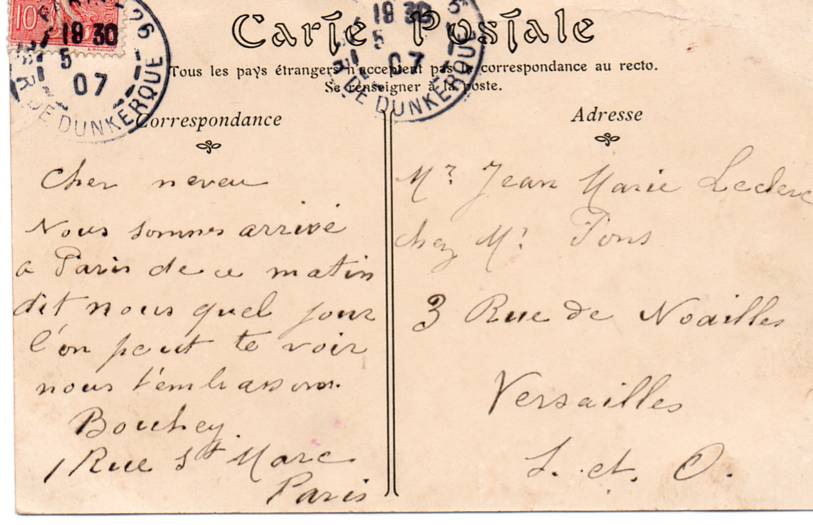 10
PARIS 26
19 30
5
07
R. DE DUNKERQUE
19 30
5
07
R. DE DUNKERQUE
Carte Postale
Tous les pays étrangers n'acceptent pas la correspondance au recto.
Se renseigner à la poste.
Correspondance
Cher neveu
Nous sommes arrivé
a Paris de ce matin
dit nous quel jour
l'on peut te voir
nous t'embrassons.
Bouhey
1 Rue St Marc
Paris
Adresse
Mr Jean Marie Leclerc
chez Mr Pons
3 Rue de Noailles
Versailles
S. et. O.